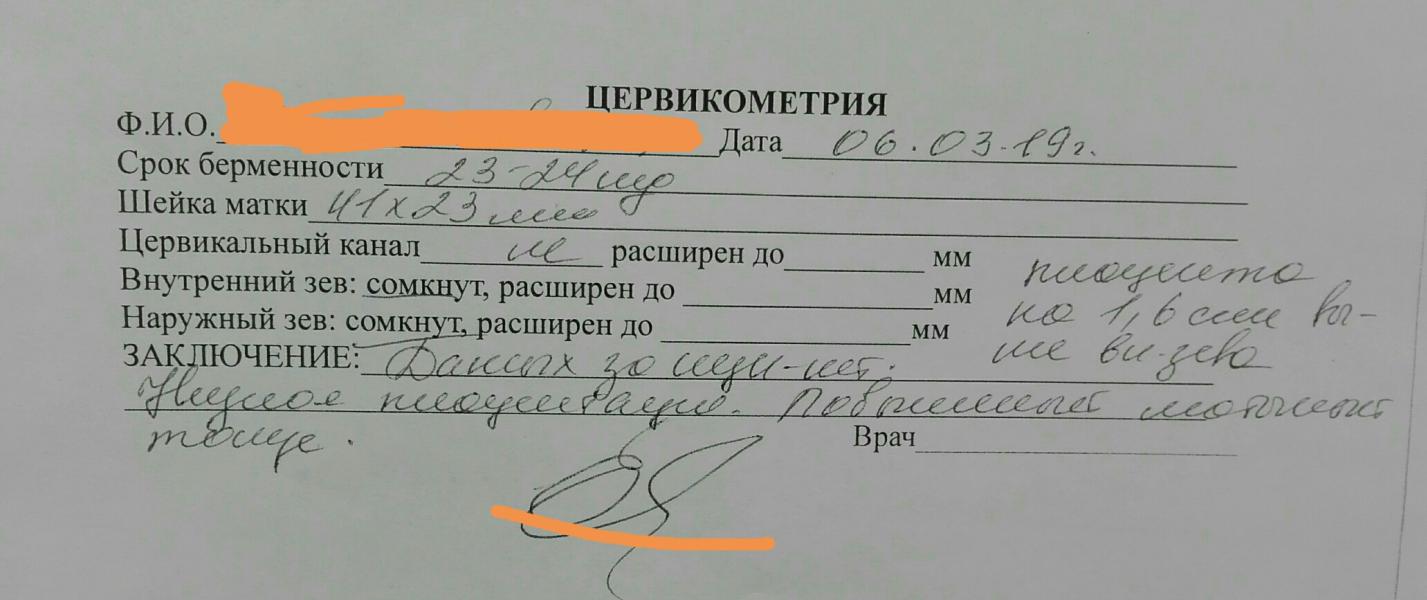 ЦЕРВИКОМЕТРИЯ
Ф.И.О. Дата 06.03.19г.
Срок берменности 23-24 нед
Шейка матки 41х23 мм
Цервикальный канал не расширен до мм
Внутренний зев: сомкнут, расширен до мм
Наружный зев: сомкнут, расширен до мм
плацента
на 1,6 см вы-
ше вн. зева
ЗАКЛЮЧЕНИЕ: Данных за ицн-нет.
Низкая плацентация. Повышенный маточный
тонус.
Врач